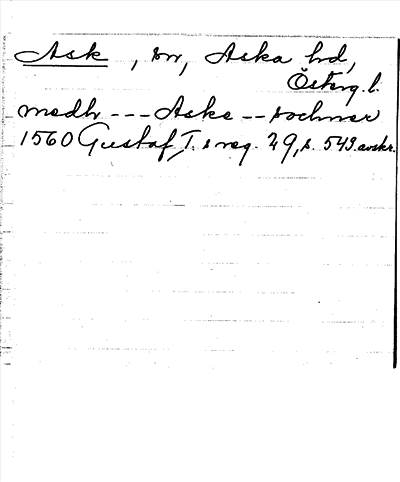 Ask, sn, Aska hd,
Österg. l.
medh --- Aske -- sochner
1560 Gustaf I:s reg. 29, s. 543. avskr.